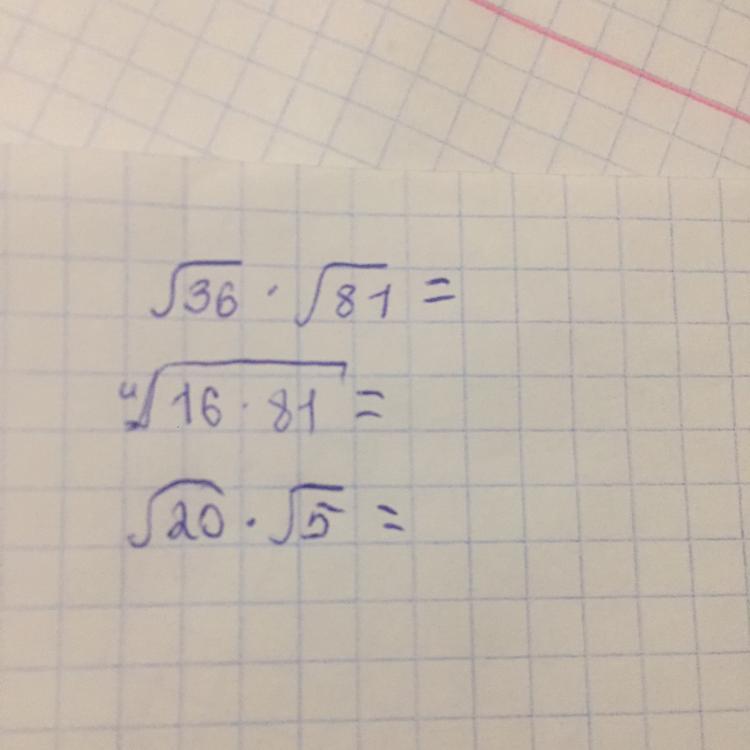 √36 · √81 =
⁴√16 · 81 =
√20 · √5 =